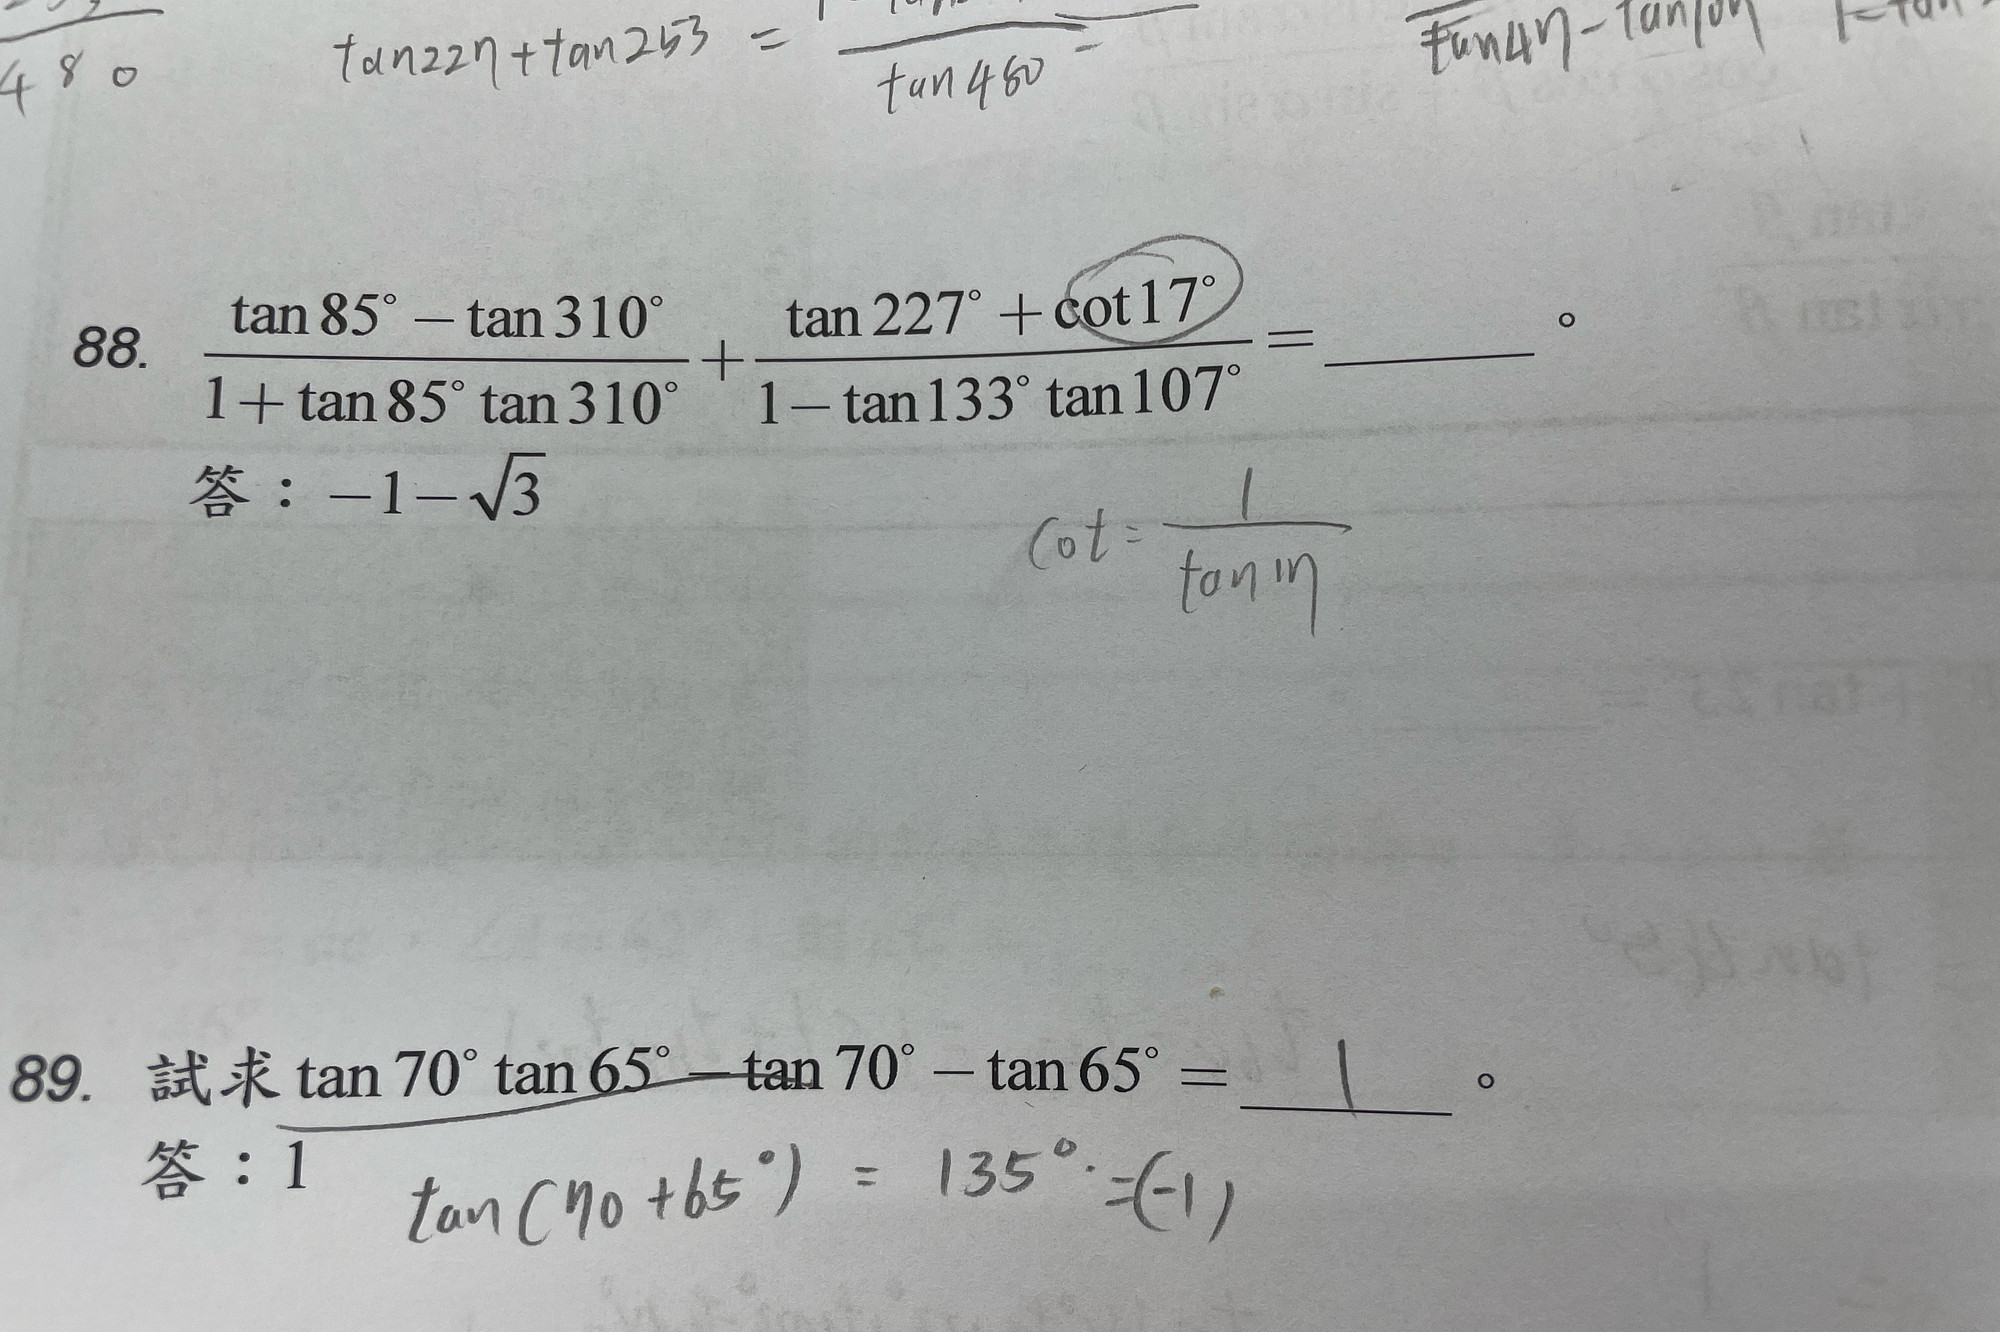 480
tan227+tan253 =
tan480
tan47-tan107
88. \frac{tan 85° − tan 310°}{1 + tan 85° tan 310°} + \frac{tan 227° + cot 17°}{1 − tan 133° tan 107°} = ______ 。
答：−1−√3
cot = \frac{1}{tan 17}
89. 試求 tan 70° tan 65° − tan 70° − tan 65° = 1 。
答：1
tan(70+65°) = 135° =(-1)